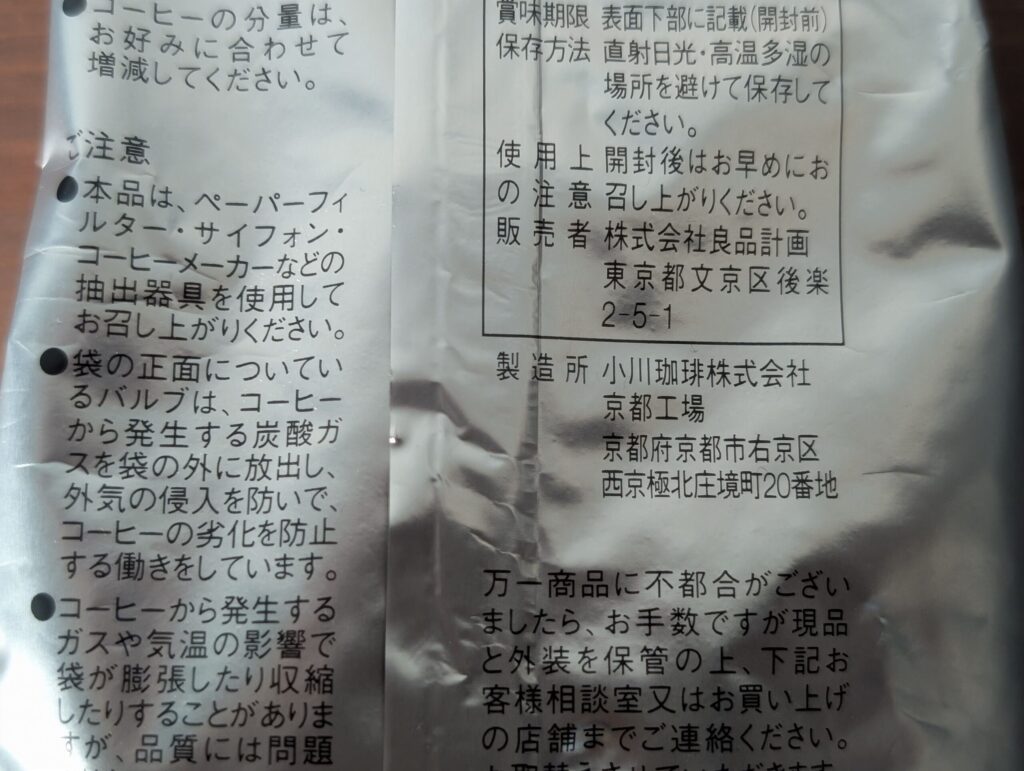 ●コーヒーの分量は、
お好みに合わせて
増減してください。
ご注意
●本品は、ペーパーフィ
ルター・サイフォン・
コーヒーメーカーなどの
抽出器具を使用して
お召し上がりください。
●袋の正面についてい
るバルブは、コーヒー
から発生する炭酸ガ
スを袋の外に放出し、
外気の侵入を防いで、
コーヒーの劣化を防止
する働きをしています。
●コーヒーから発生する
ガスや気温の影響で
袋が膨張したり収縮
したりすることがありま
すが、品質には問題
賞味期限 表面下部に記載(開封前)
保存方法 直射日光・高温多湿の
場所を避けて保存して
ください。
使用上 開封後はお早めにお
の注意 召し上がりください。
販売者 株式会社良品計画
東京都文京区後楽
2-5-1
製造所 小川珈琲株式会社
京都工場
京都府京都市右京区
西京極北庄境町20番地
万一商品に不都合がござい
ましたら、お手数ですが現品
と外装を保管の上、下記お
客様相談室又はお買い上げ
の店舗までご連絡ください。